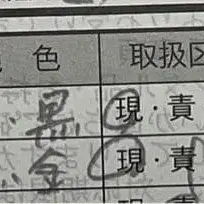 色 取扱区
黒 現・責
金 現・責
現・責